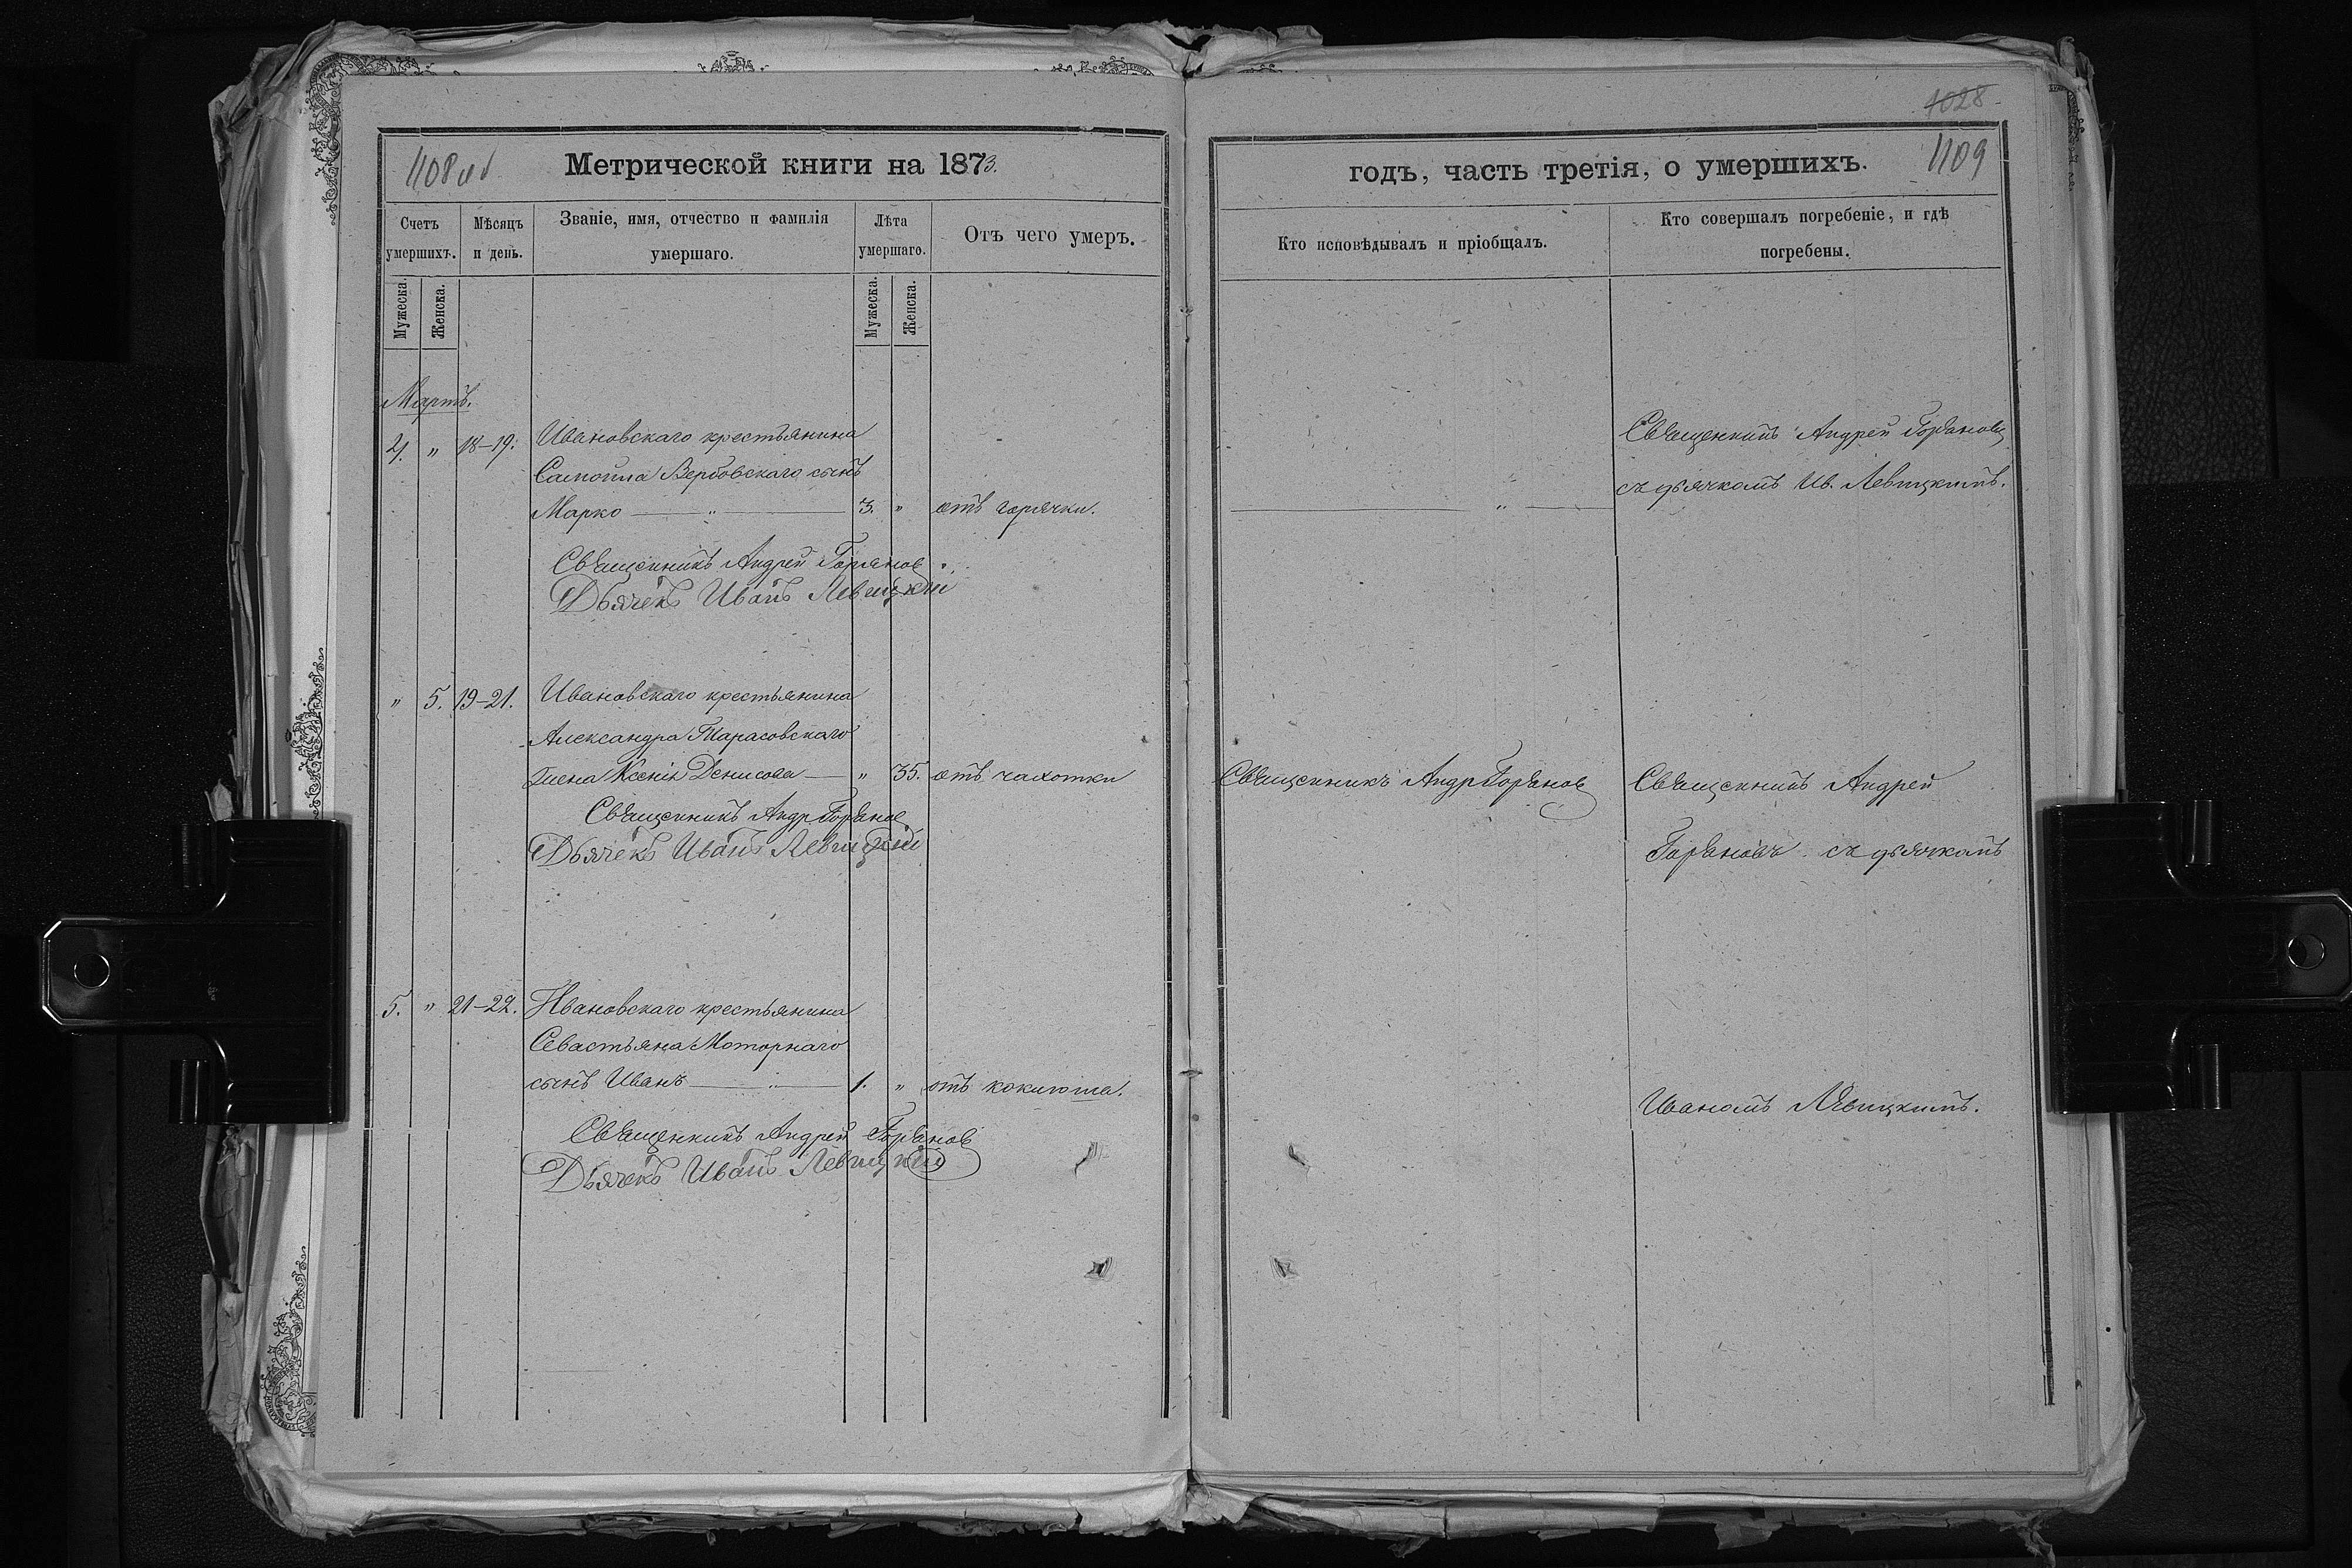 1028
1108 об
Метрической книги на 1873.
годъ, часть третія, о умершихъ.
1109
Счетъ умершихъ.
Мѣсяцъ и день.
Званіе, имя, отчество и фамилія умершаго.
Лѣта умершаго.
Отъ чего умеръ.
Кто исповѣдывалъ и пріобщалъ.
Кто совершалъ погребеніе, и гдѣ погребены.
Мужеска.
Женска.
Мужеска.
Женска.
Мартъ.
4. " 18-19. Ивановскаго крестьянина
Самойла Вербовскаго сынъ
Марко — " — 3. " отъ горячки.
— " —
Священникъ Андрей
съ дьячкомъ Ив. Левицкимъ.
Священникъ Андрей
Дьячекъ Иванъ Левицкій
" 5. 19-21. Ивановскаго крестьянина
Александра Тарасовскаго
жена Ксенія Денисова — " 35. отъ чахотки
Священникъ Андр
Священникъ Андрей
съ дьячкомъ
Священникъ Андр
Дьячекъ Иванъ Левицкій
5. " 21-22. Ивановскаго крестьянина
Севастьяна Моторнаго
сынъ Иванъ — " — 1. " отъ коклюша.
Иваномъ Левицкимъ.
Священникъ Андрей
Дьячекъ Иванъ Левицкій